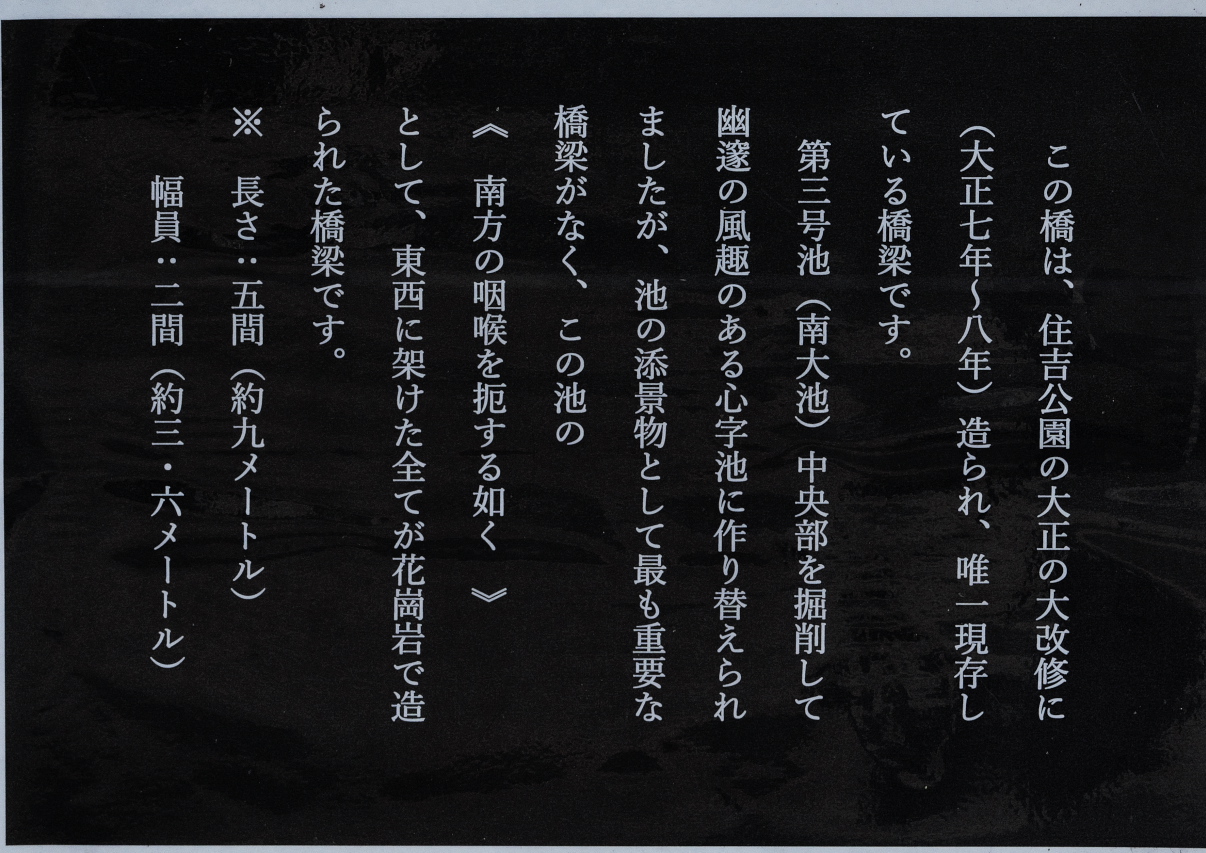 この橋は、住吉公園の大正の大改修に
(大正七年〜八年)造られ、唯一現存し
ている橋梁です。
第三号池(南大池)中央部を掘削して
幽邃の風趣のある心字池に作り替えられ
ましたが、池の添景物として最も重要な
橋梁がなく、この池の
《 南方の咽喉を扼する如く 》
として、東西に架けた全てが花崗岩で造
られた橋梁です。
※ 長さ:五間(約九メートル)
幅員:二間(約三・六メートル)